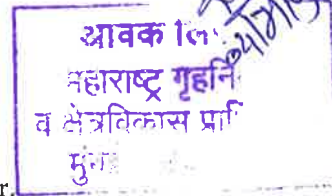 आवक लि
महाराष्ट्र गृहनि
व क्षेत्रविकास प्रा
मुं
r.